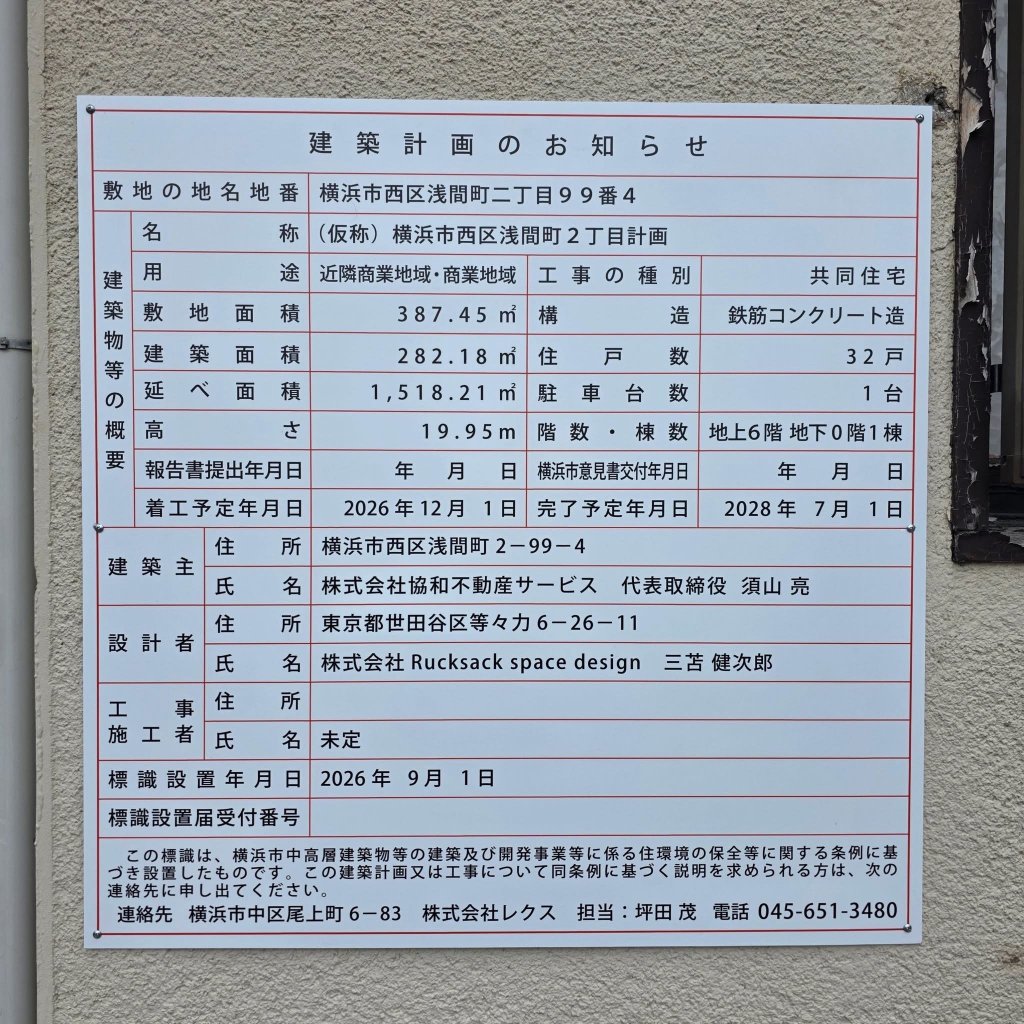 建築計画のお知らせ
敷地の地名地番 横浜市西区浅間町二丁目99番4
建築物等の概要
名称 (仮称) 横浜市西区浅間町2丁目計画
用途 近隣商業地域・商業地域 工事の種別 共同住宅
敷地面積 387.45㎡ 構造 鉄筋コンクリート造
建築面積 282.18㎡ 住戸数 32戸
延べ面積 1,518.21㎡ 駐車台数 1台
高さ 19.95m 階数・棟数 地上6階 地下0階1棟
報告書提出年月日 年 月 日 横浜市意見書交付年月日 年 月 日
着工予定年月日 2026年12月 1日 完了予定年月日 2028年 7月 1日
建築主 住所 横浜市西区浅間町2-99-4
氏名 株式会社協和不動産サービス 代表取締役 須山 亮
設計者 住所 東京都世田谷区等々力6-26-11
氏名 株式会社Rucksack space design 三苫 健次郎
工事施工者 住所
氏名 未定
標識設置年月日 2026年 9月 1日
標識設置届受付番号
この標識は、横浜市中高層建築物等の建築及び開発事業等に係る住環境の保全等に関する条例に基
づき設置したものです。この建築計画又は工事について同条例に基づく説明を求められる方は、次の
連絡先に申し出てください。
連絡先 横浜市中区尾上町6-83 株式会社レクス 担当:坪田 茂 電話 045-651-3480